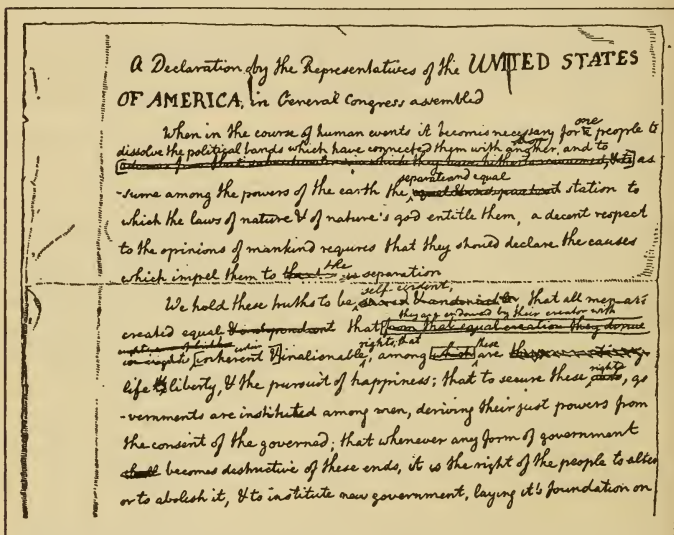 A Declaration by the Representatives of the UNITED STATES
OF AMERICA, in General Congress assembled
When in the course of human events it becomes necessary for one people to
dissolve the political bands which have connected them with another, and to
as
-sume among the powers of the earth the separate and equal station to
which the laws of nature & of nature's god entitle them, a decent respect
to the opinions of mankind requires that they should declare the causes
which impel them to the separation
We hold these truths to be self evident, that all men are
created equal that they are endowed by their creator with
from that equal creation they derive
inherent & inalienable rights; that among these are
life liberty, & the pursuit of happiness; that to secure these rights, go
-vernments are instituted among men, deriving their just powers from
the consent of the governed; that whenever any form of government
shall becomes destructive of these ends, it is the right of the people to alter
or to abolish it, & to institute new government, laying it's foundation on